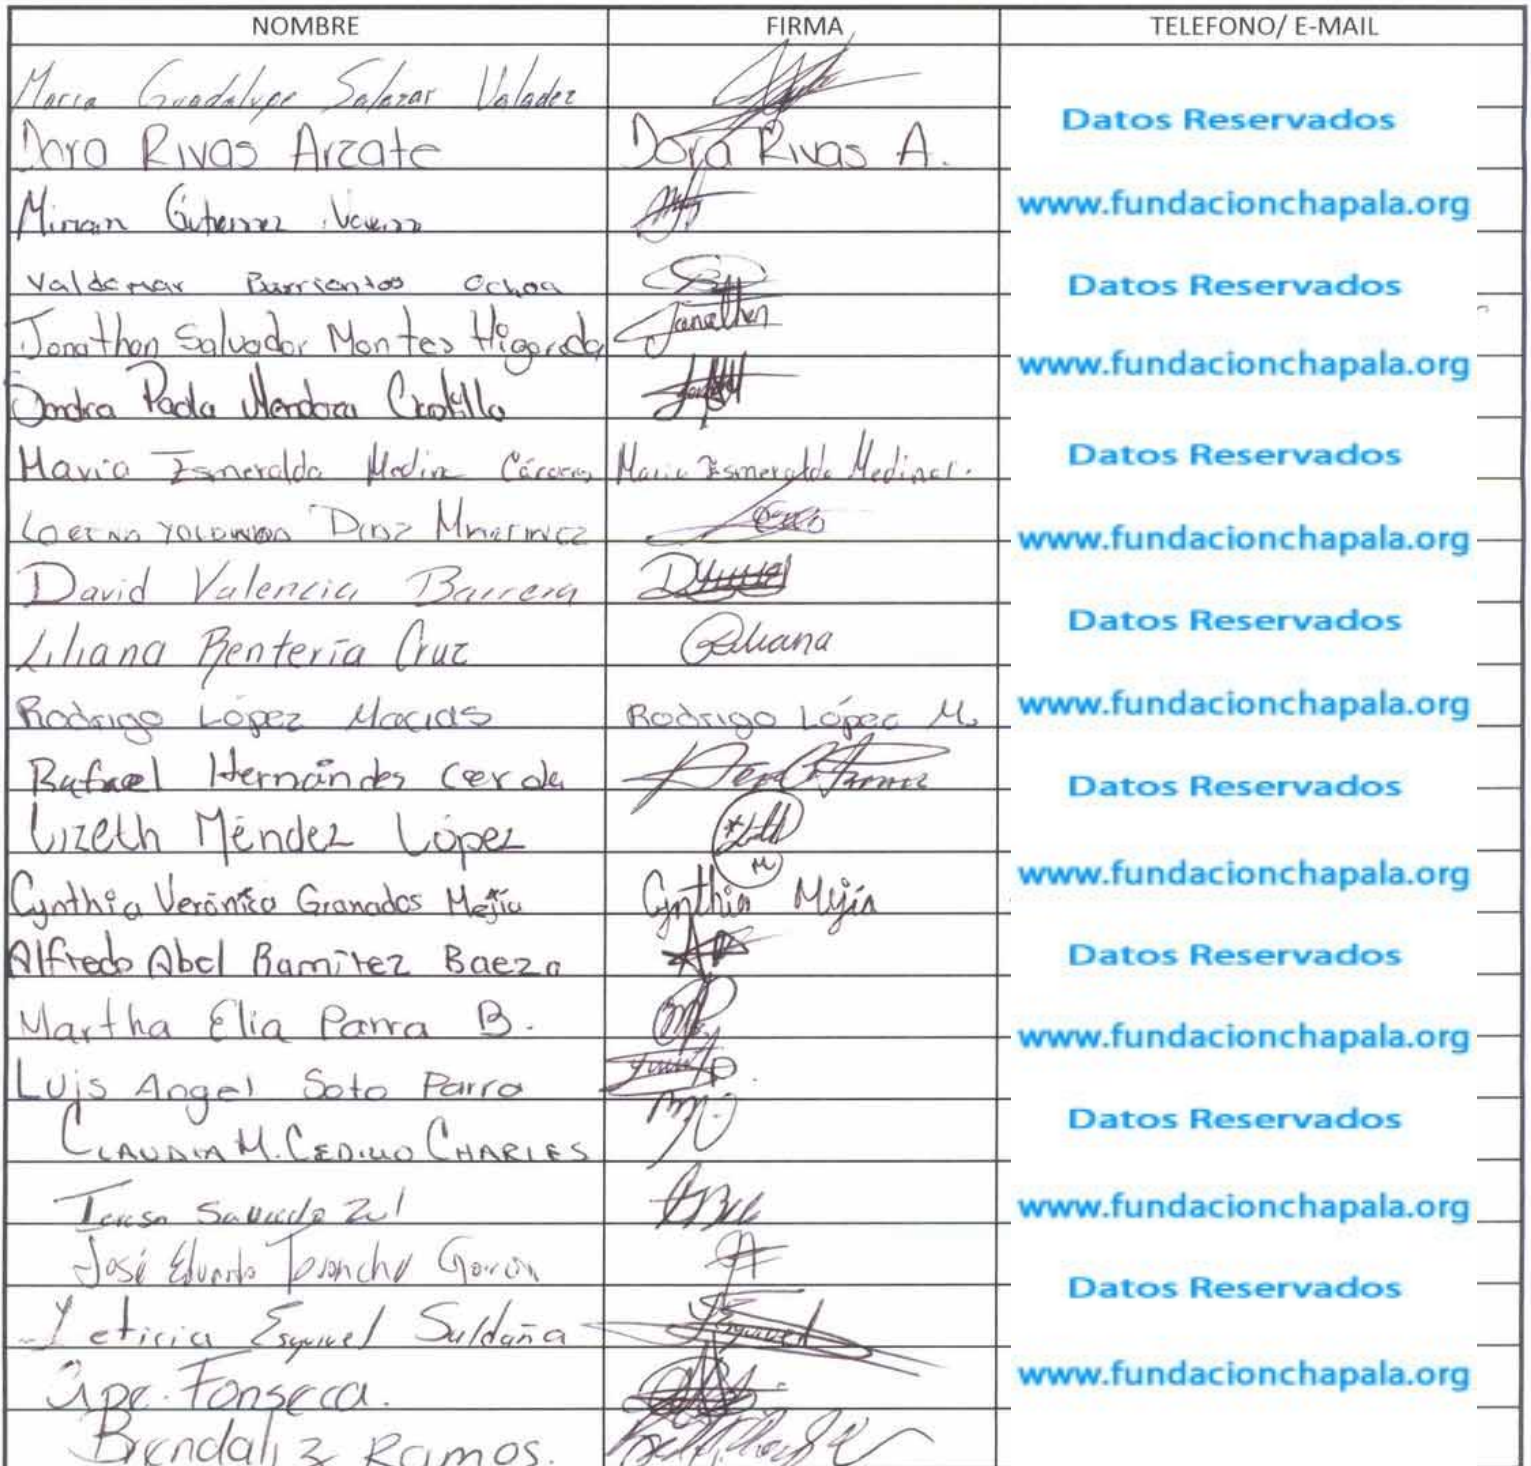 NOMBRE FIRMA TELEFONO/ E-MAIL
Maria Guadalupe Salazar Valadez
Datos Reservados
Dora Rivas Arzate Dora Rivas A.
www.fundacionchapala.org
Miriam Gutierrez
Valdemar Barrientos Ochoa
Datos Reservados
Jonathan Salvador Montes Higareda Jonathan
www.fundacionchapala.org
Sandra Paola Mendoza Castillo
Maria Esmeralda Medina Cáceres Maria Esmeralda Medina C.
Datos Reservados
Lorena Yolanda Diaz Martinez
www.fundacionchapala.org
David Valencia Barrera
Liliana Rentería Cruz Liliana
Datos Reservados
Rodrigo López Macias Rodrigo López M.
www.fundacionchapala.org
Rafael Hernández Cerda
Datos Reservados
Lizeth Méndez López
Cynthia Verónica Granados Mejía Cynthia Mejía
www.fundacionchapala.org
Alfredo Abel Ramírez Baeza
Datos Reservados
Martha Elia Parra B.
www.fundacionchapala.org
Luis Angel Soto Parra
CLAUDIA M. CEDILLO CHARLES
Datos Reservados
Teresa
www.fundacionchapala.org
José Eduardo García
Datos Reservados
Leticia Esquivel Saldaña Esquivel
Gpe. Fonseca.
www.fundacionchapala.org
Brendaliz Ramos.